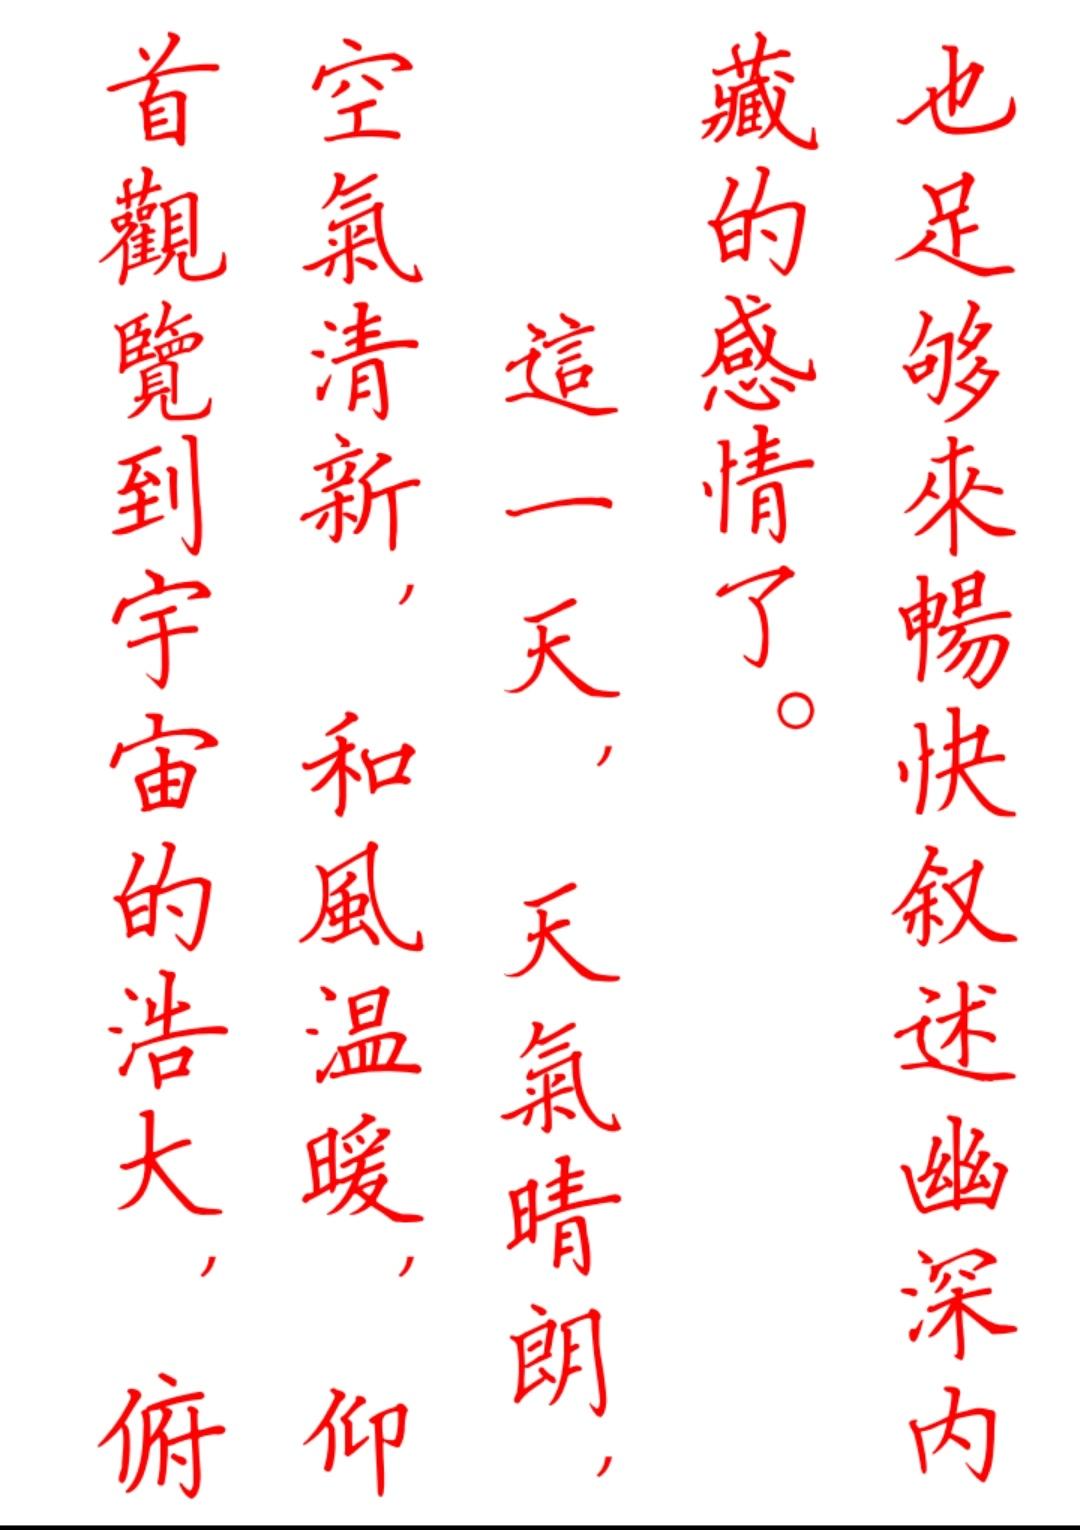 也足够來暢快叙述幽深内
藏的感情了。
這一天，天氣晴朗，
空氣清新，和風温暖，仰
首觀覽到宇宙的浩大，俯